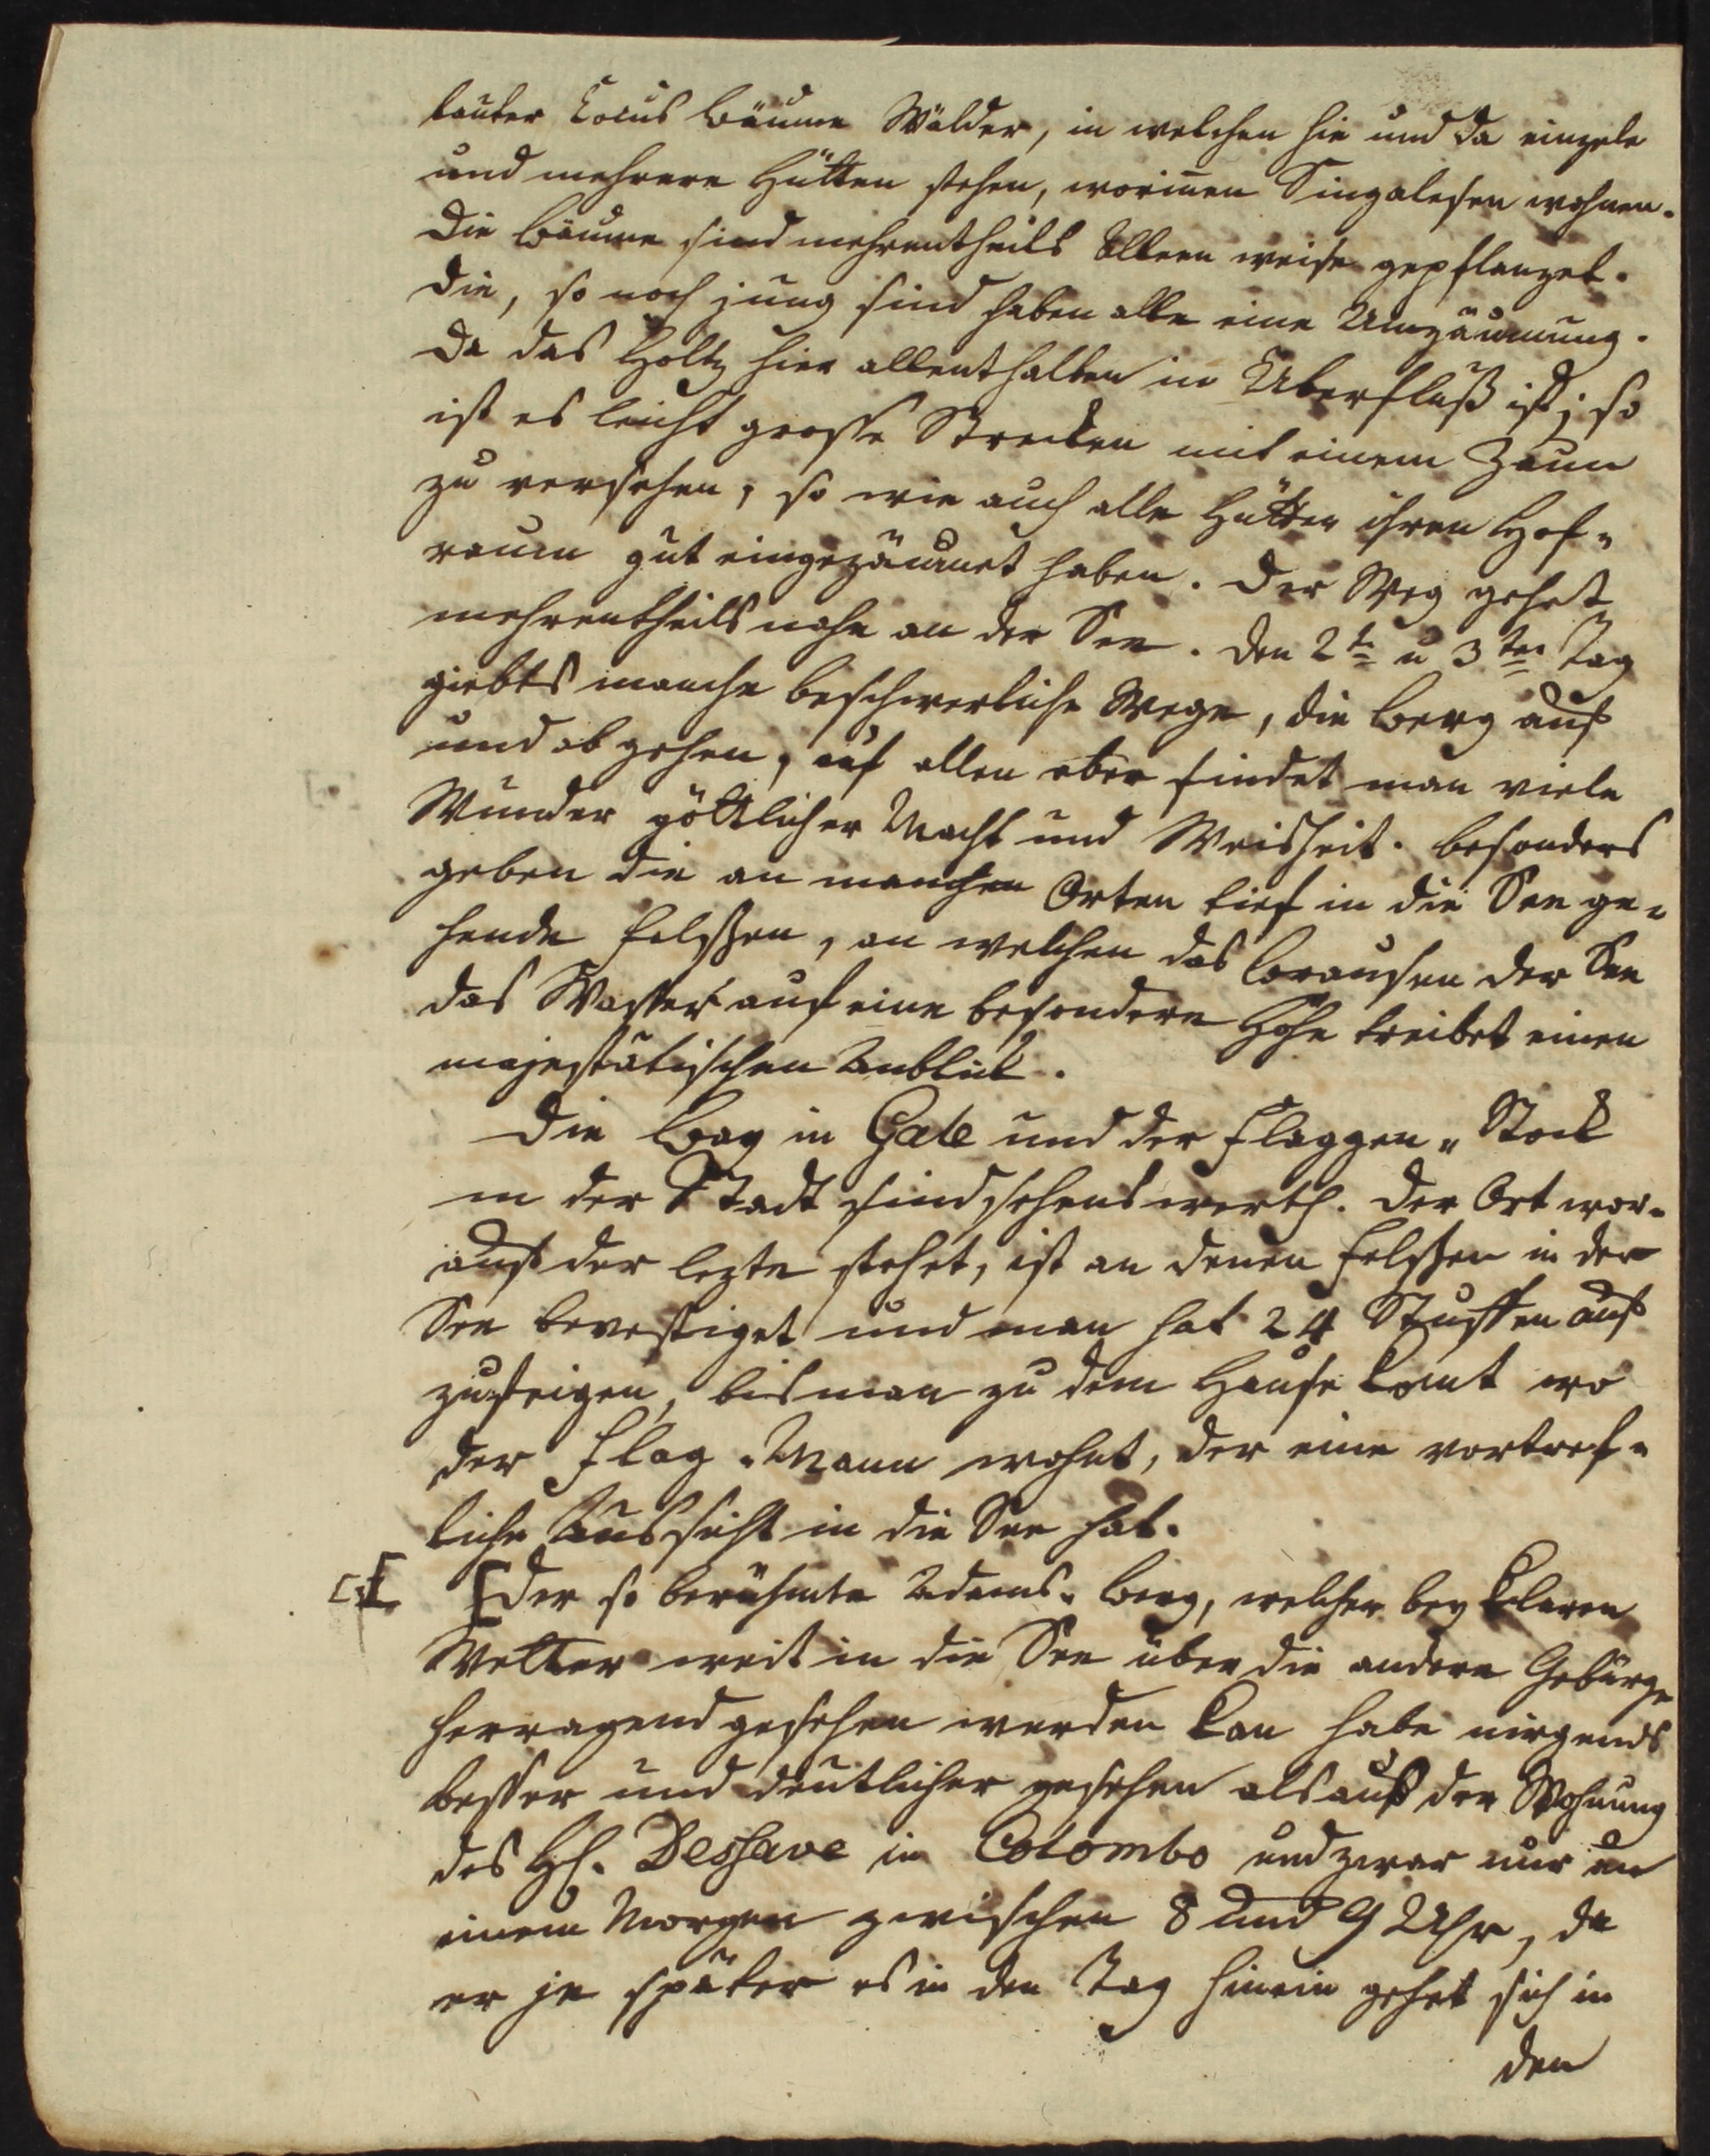 lauter Cocus bäume Wälder, in welchen hie und da einzele
und mehrere Hütten stehen, woriñen Singalesen wohnen.
Die Bäume sind mehrentheils Alleen weise gepflanzet.
Die, so noch jung sind haben alle eine Umzäunung.
Da das Holtz hier allenthalben in Uberfluß ist; so
ist es leicht grosse Strecken mit einem Zaun
zu versehen, so wie auch alle Hütten ihren Hof-
raum gut eingezäunet haben. Der Weg gehet
mehrentheils nahe an der See. Den 2te u 3ten Tag
giebts manche beschwerliche Wege, die Berg auf
und ab gehen, auf allen aber findet man viele
Wunder göttlicher Macht und Weisheit. besonders
geben die an manchen Orten tief in die See ge-
hende Felssen, an welchen das Brausen der See
das Wasser auf eine besondere Höhe treibet einen
majestätischen Anblick.
Die Bay in Gale und der Flaggen-Stock
in der Stadt sind sehens werth. Der Ort wor-
auf der lezte stehet, ist an denen Felssen in der
See bevestiget und man hat 24 Stuffen auf
zusteigen, bis man zu dem Hause komt wo
der Flag-Mann wohnt, der eine vortref-
liche Aussicht in die See hat.
[Der so berühmte Adams-Berg, welcher bey klaren
Wetter weit in die See über die andern Gebürge
herragend gesehen werden kan habe nirgends
besser und deutlicher gesehen als auf der Wohnung
des Hl. Dessave in Colombo und zwar nur an
einem Morgen zwischen 8 und 9 Uhr, da
er je später es in den Tag hinein gehet sich in
den